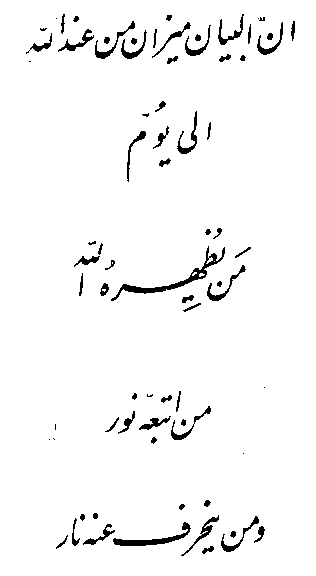 انّ البیان میزان من عند الله
الی یُومّ
مَن یُظهِرهُ اللّه
من اتبعّه نور
ومن ینحرف عنه نار